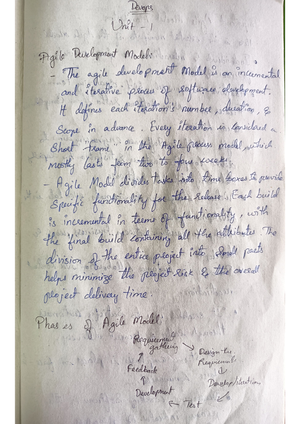 Devops
Unit - 1
Agile Development Model:
- The agile development Model is an incremental
and iterative process of software development.
It defines each iteration's number, duration, &
Scope in advance. Every iteration is considered a
Short "frame" in the Agile process model, which
mostly lasts from two to four weeks.
- Agile Model divides tasks into time boxes to provide
specific functionality for the release. Each build
is incremental in terms of functionality, with
the final build containing all the attributes. The
division of the entire project into small parts
helps minimize the project risk & the overall
project delivery time.
Phases of Agile Model:
Requirement
gathering
Design the
Requirements
Feedback
Development
Test